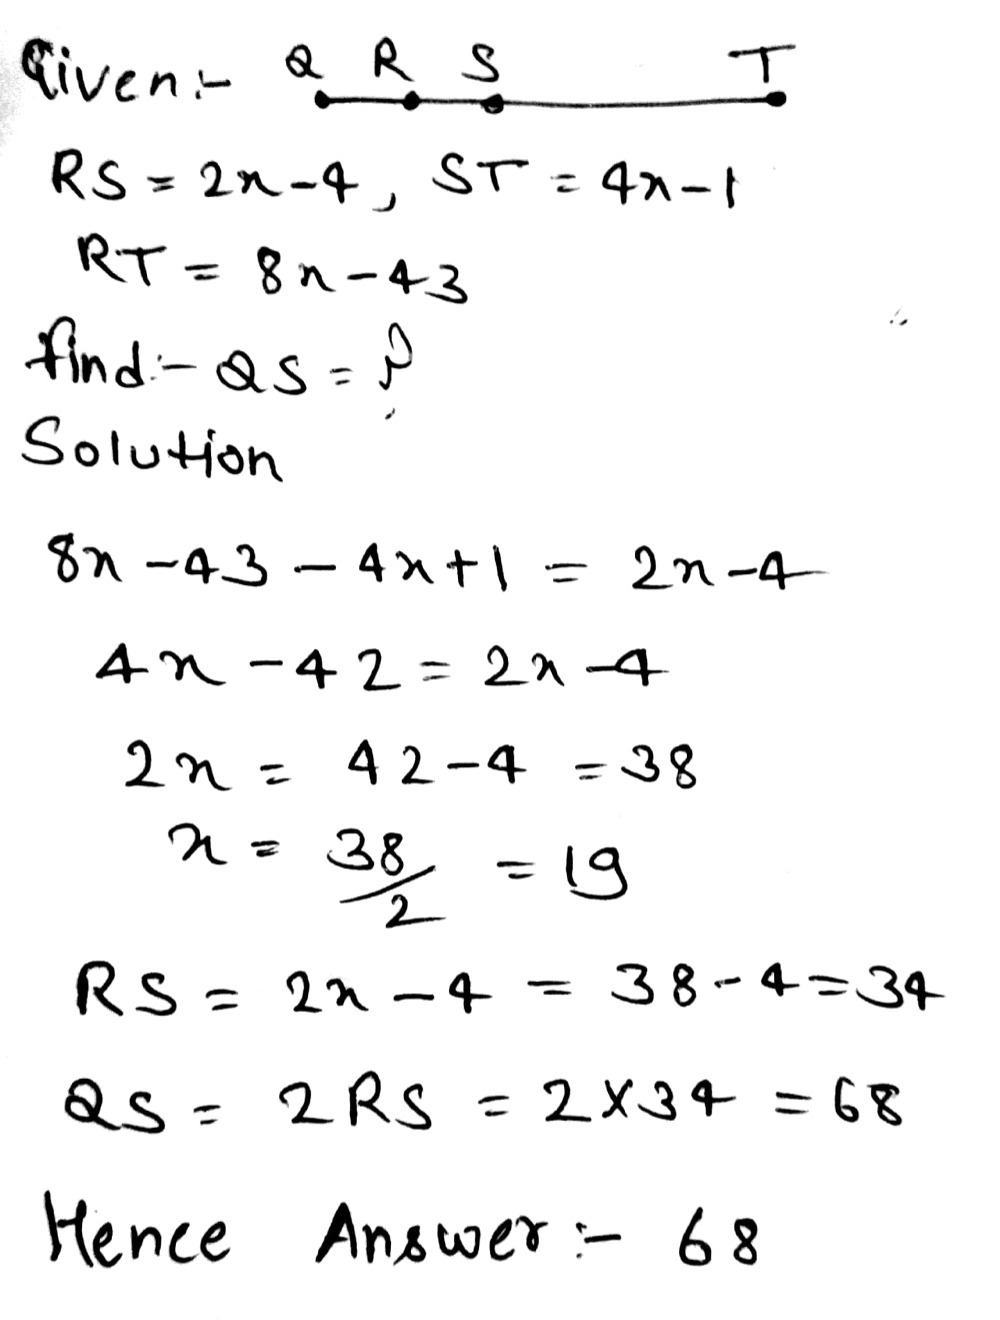 Given:- Q R S T
RS = 2x-4, ST = 4x-1
RT = 8x-43
find:- QS = ?
Solution
8x-43-4x+1 = 2x-4
4x-42 = 2x-4
2x = 42-4 = 38
x = 38/2 = 19
RS = 2x-4 = 38-4=34
QS = 2RS = 2x34 = 68
Hence Answer:- 68